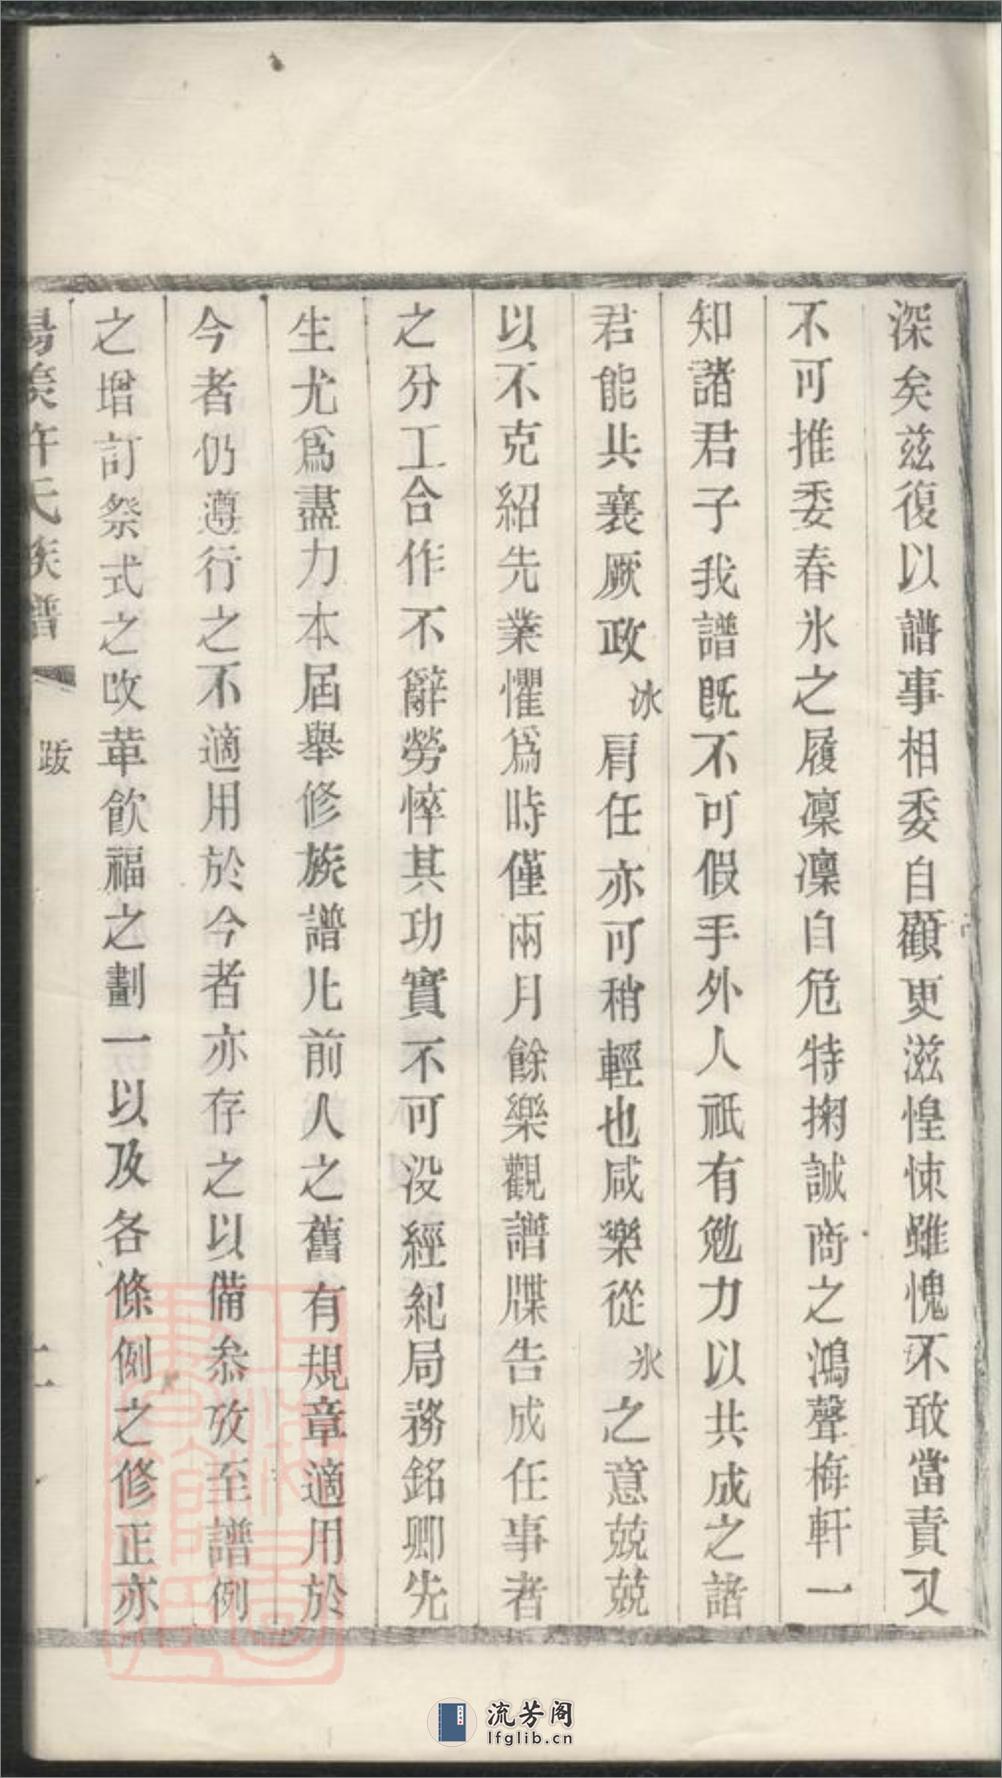 深矣茲復以譜事相委自顧更滋惶悚雖愧不敢當責又
不可推委春氷之履凜凜自危特掬誠商之鴻聲梅軒一
知諸君子我譜既不可假手外人祇有勉力以共成之諸
君能共襄厥政冰肩任亦可稍輕也咸樂從氷之意兢兢
以不克紹先業懼爲時僅兩月餘樂觀譜牒告成任事者
之分工合作不辭勞悴其功實不可没經紀局務銘卿先
生尤爲盡力本屆舉修族譜凡前人之舊有規章適用於
今者仍遵行之不適用於今者亦存之以備叅攷至譜例
之增訂祭式之改革飲福之劃一以及各條例之修正亦
許氏族譜
跋
上海圖書館藏
流芳阁
lfglib.cn